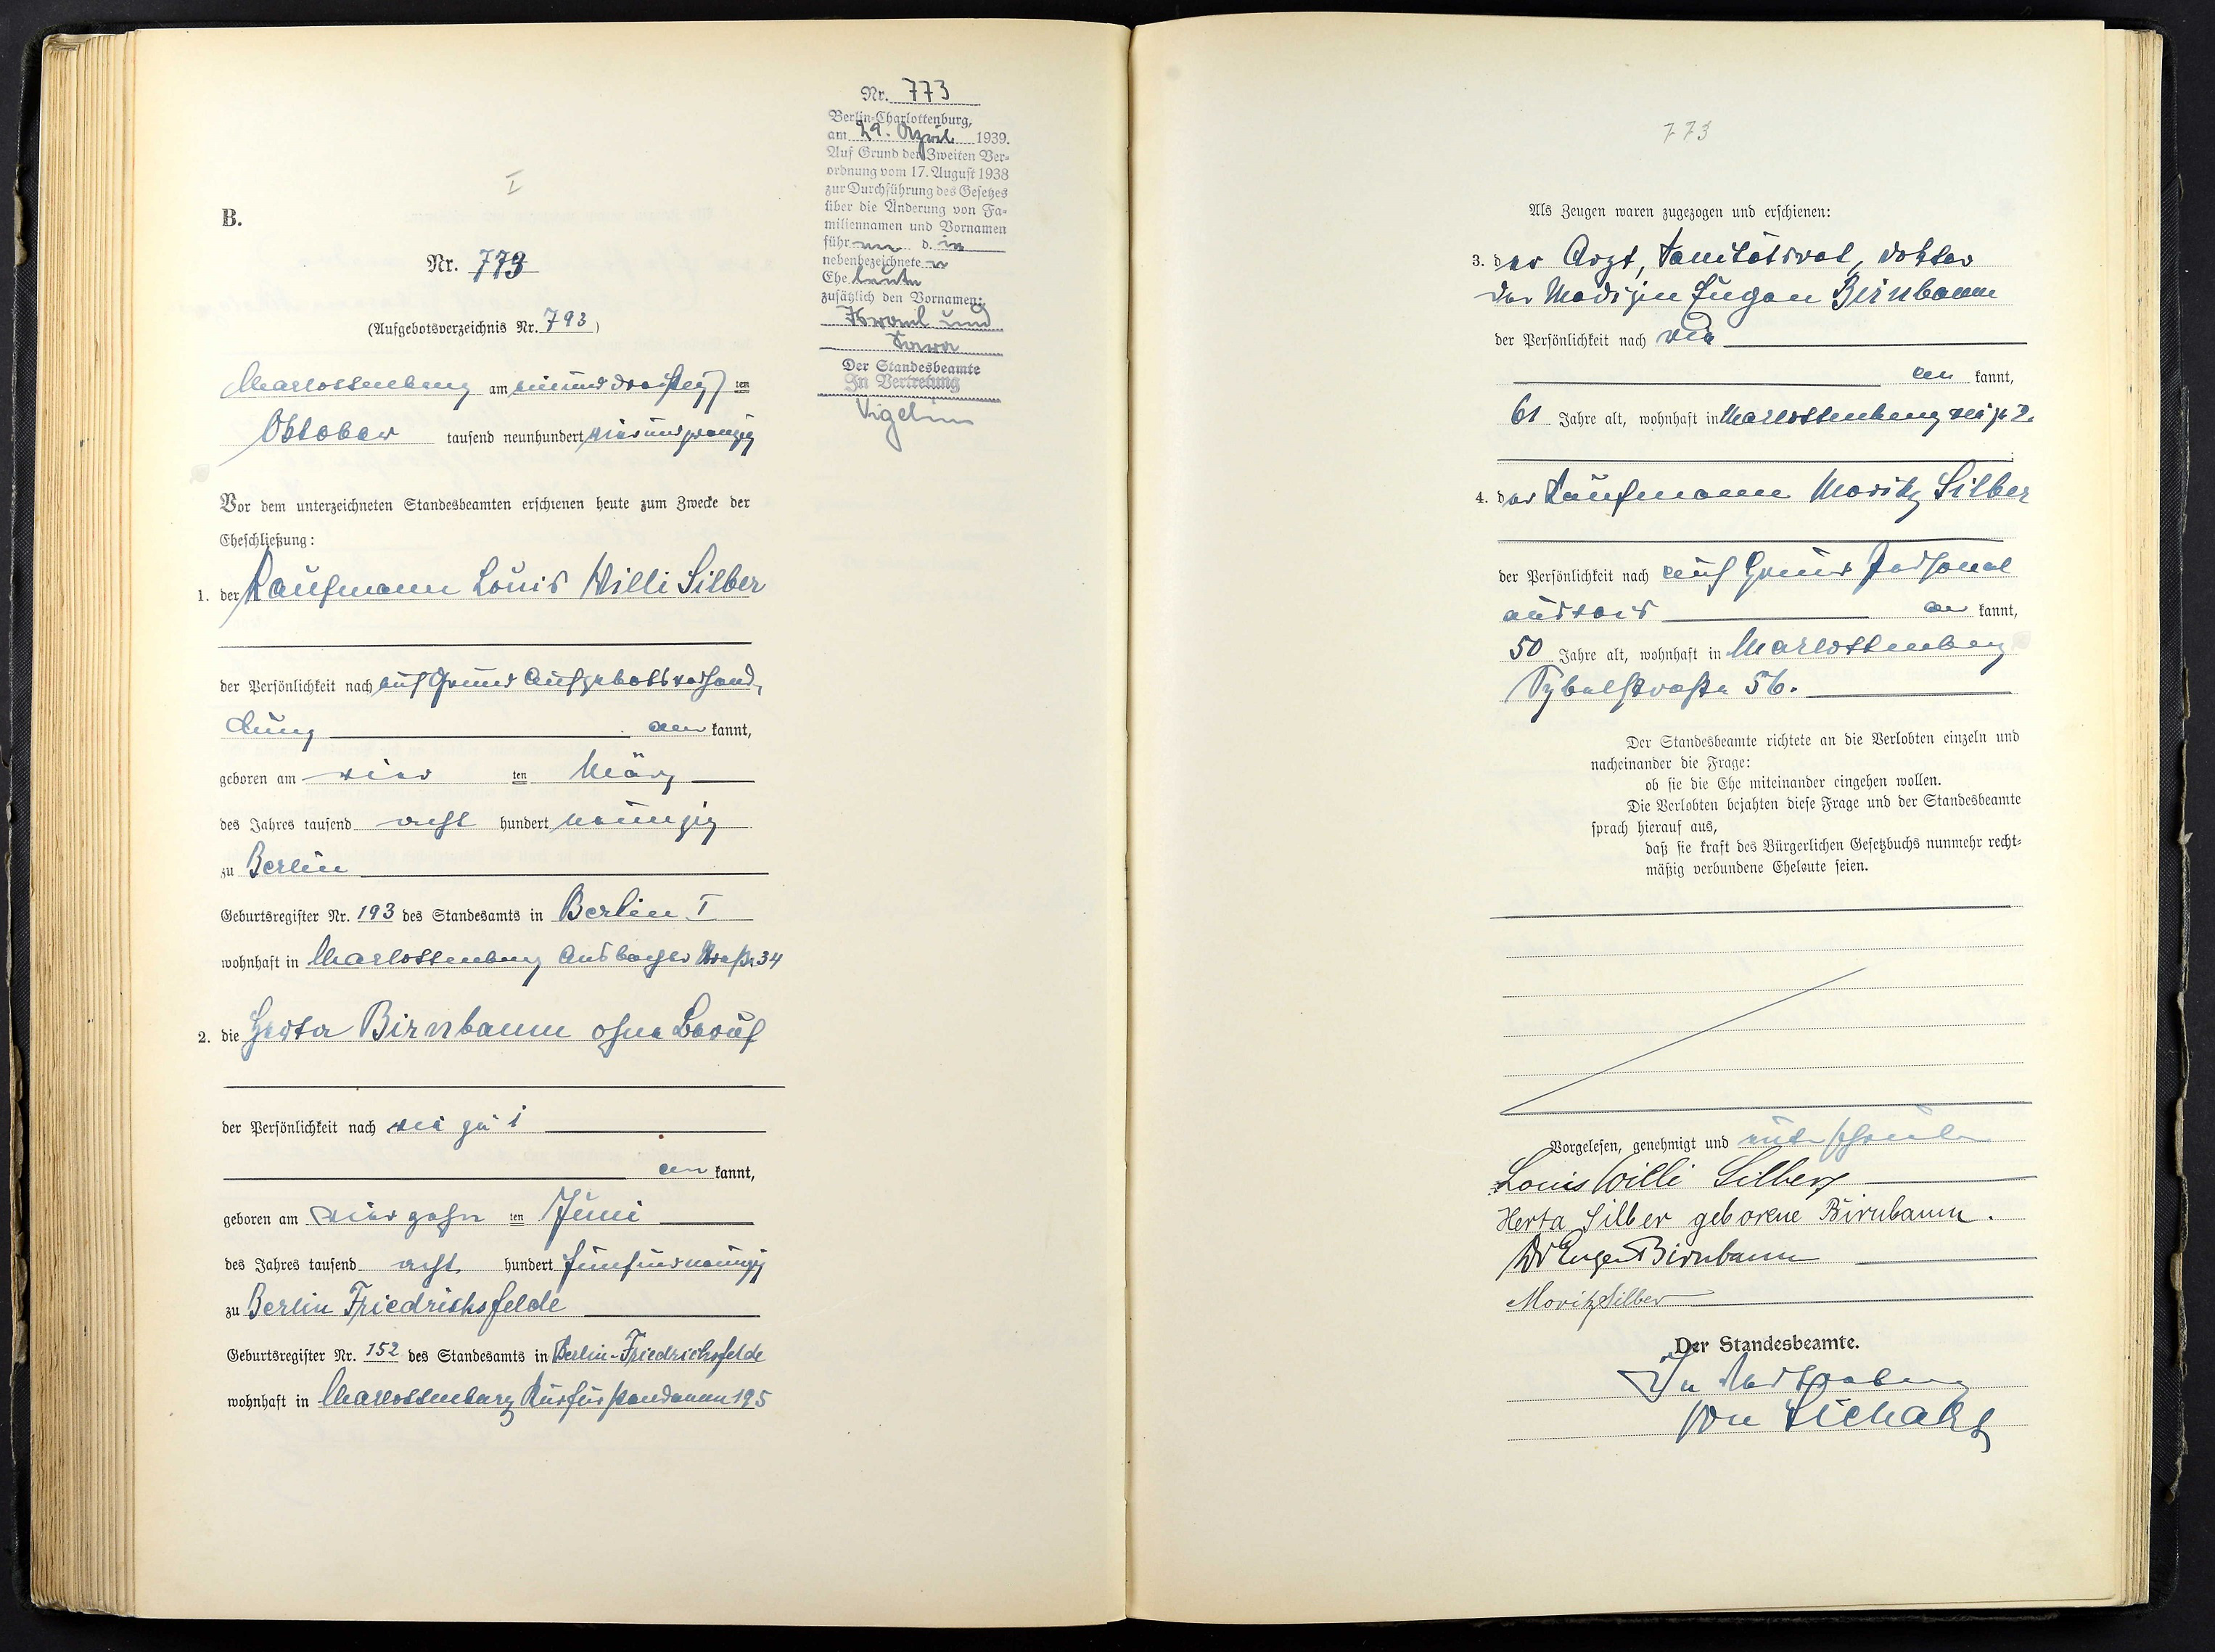 I
B.
Nr. 773
(Aufgebotsverzeichnis Nr. 793)
Charlottenburg am einunddreißig ten
Oktober tausend neunhundert vierundzwanzig
Vor dem unterzeichneten Standesbeamten erschienen heute zum Zwecke der
Eheschließung:
1. der Kaufmann Louis Willi Silber
der Persönlichkeit nach auf Grund Aufgebotsverhand-
lung anerkannt,
geboren am vier ten März
des Jahres tausend acht hundert neunzig
zu Berlin
Geburtsregister Nr. 193 des Standesamts in Berlin I
wohnhaft in Charlottenburg Ansbacher Straße 34
2. die Herta Birnbaum ohne Beruf
der Persönlichkeit nach wie zu 1
anerkannt,
geboren am vierzehn ten Juni
des Jahres tausend acht hundert fünfundneunzig
zu Berlin Friedrichsfelde
Geburtsregister Nr. 152 des Standesamts in Berlin-Friedrichsfelde
wohnhaft in Charlottenburg Kurfürstendamm 195
Nr. 773
Berlin-Charlottenburg,
am 29. April 1939.
Auf Grund der Zweiten Ver-
ordnung vom 17. August 1938
zur Durchführung des Gesetzes
über die Änderung von Fa-
miliennamen und Vornamen
führen die
nebenbezeichneten
Eheleute
zusätzlich den Vornamen:
Israel und
Sara
Der Standesbeamte
In Vertretung
773
Als Zeugen waren zugezogen und erschienen:
3. der Arzt, Sanitätsrat, Doktor
der Medizin Eugen Birnbaum
der Persönlichkeit nach wie
kannt,
61 Jahre alt, wohnhaft in Charlottenburg wie zu 2.
4. der Kaufmann Moritz Silber
der Persönlichkeit nach auf Grund Personal
ausweis kannt,
50 Jahre alt, wohnhaft in Charlottenburg
Sybelstraße 56.
Der Standesbeamte richtete an die Verlobten einzeln und
nacheinander die Frage:
ob sie die Ehe miteinander eingehen wollen.
Die Verlobten bejahten diese Frage und der Standesbeamte
sprach hierauf aus,
daß sie kraft des Bürgerlichen Gesetzbuchs nunmehr recht-
mäßig verbundene Eheleute seien.
Vorgelesen, genehmigt und unterschrieben
Louis Willi Silber
Herta Silber geborene Birnbaum.
Dr Eugen Birnbaum
Moritz Silber
Der Standesbeamte.
In Vertretung
von